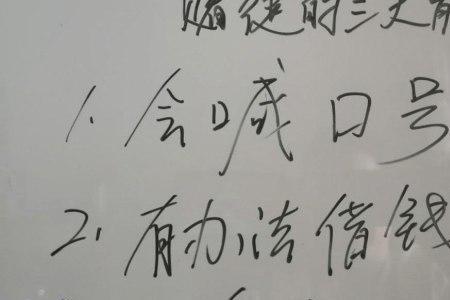 赌徒的三大
1. 会喊口号
2. 有办法借钱